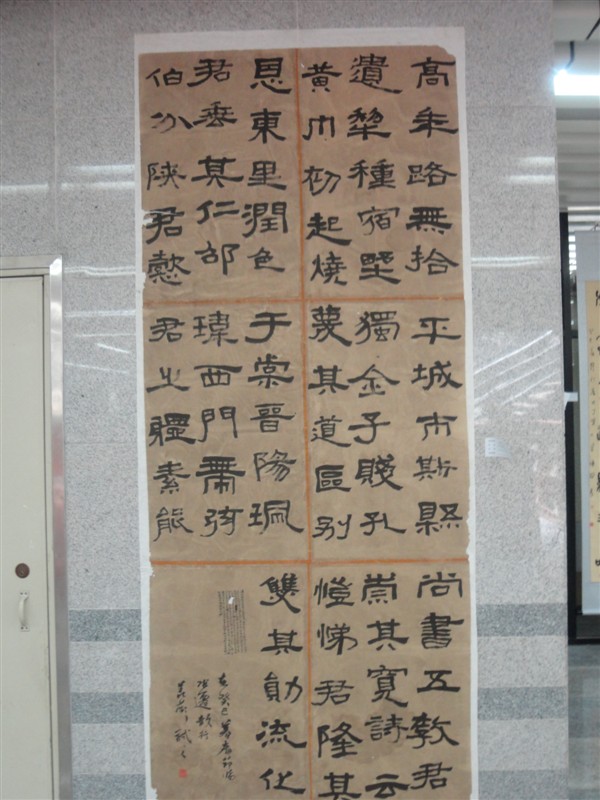 高年路無拾
遺犂種宿壄
黃巾初起燒
平城市斯縣
獨全子賤孔
蔑其道區别
尚書五教君
崇其寬詩云
愷悌君隆其
恩東里潤色
君垂其仁邵
伯分陝君懿
于棠晉陽珮
瑋西門帶弦
君之體素能
雙其勛流化
癸巳暮春